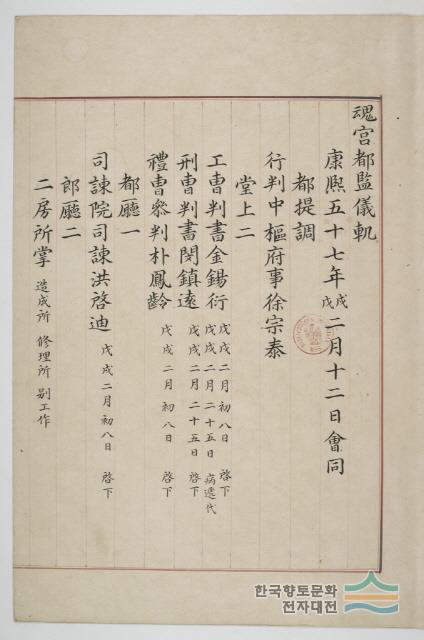 魂宮都監儀軌
康熙五十七年戊戌二月十二日會同
都提調
行判中樞府事徐宗泰
堂上二
工曹判書金錫衍 戊戌二月初八日 啓下 戊戌二月二十五日 病遞代
刑曹判書閔鎮遠 戊戌二月二十五日 啓下
禮曹參判朴鳳齡 戊戌二月初八日 啓下
都廳一
司諫院司諫洪啓迪 戊戌二月初八日 啓下
郎廳二
二房所掌 造成所 修理所 別工作
한국향토문화
전자대전